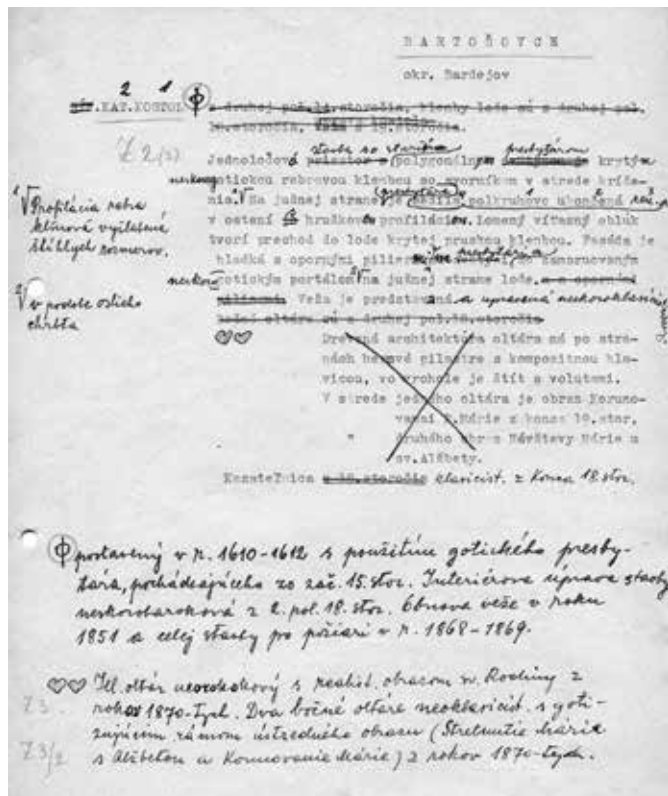 BARTOŠOVCE
okr. Bardejov
2 1
.KAT.KOSTOL
z druhej pol.14.storočia, klenby lode sú z druhej pol.
18.storočia, veža z 19.storočia.
Z 2(3)
Jednoloďová stavba so starším polygonálnym presbytárom krytým
neskorogotickou rebrovou klenbou so svorníkom v strede kríže-
nia. Na južnej strane presbytéria je sedília polkruhovo ukončená
v ostení hruškovou profiláciou. Lomený víťazný oblúk
tvorí prechod do lode krytej pruskou klenbou. Fasáda je
hladká s opornými piliermi
neskorogotickým portálom na južnej strane lode.
Veža je predstavaná a upravená neskoroklasic.
Bočné oltáre sú z druhej pol.18.storočia
1 √ Profilácia rebra
klinová vyžlabená
štíhlych rozmerov.
2 √ v podobe oslieho
chrbta
Drevená architektúra oltára má po stra-
nách hranové pilastre s kompozitnou hla-
vicou, vo vrchole je štít s volutami.
V strede jedného oltára je obraz Koruno-
vania P.Márie z konca 19.stor.
" druhého obraz Návštevy Márie u
sv.Alžbety.
Kazateľnica z 18.storočia klasicist. z konca 18. stor.
postavený v r. 1610-1612 s použitím gotického presby-
tára, pochádzajúceho zo zač. 15. stor. Interiérová úprava stavby
neskorobaroková z 2. pol. 18. stor. Obnova veže v roku
1851 a celej stavby po požiari v r. 1868-1869.
Hl. oltár neorokokový s realist. obrazom sv. Rodiny z
rokov 1870-tych. Dva bočné oltáre neoklasicist. s goti-
zujúcim rámom ústredného obrazu (Stretnutie Márie
s Alžbetou a Korunovanie Márie) z rokov 1870-tych.
Z 3
Z 3/2